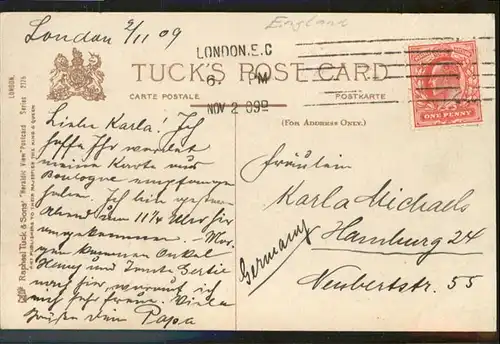 London 2/11 09
England
LONDON. E.C
6. PM
NOV 2 09
TUCK'S POST CARD
CARTE POSTALE
POSTKARTE
(For Address Only.)
ONE PENNY
LONDON.
Raphael Tuck & Sons' "Heraldic View" Postcard Series
ART PUBLISHERS TO THEIR MAJESTIES THE KING & QUEEN
Liebe Karla! Ich
hoffe Ihr werdet
meine Karte aus
Boulogne empfangen
haben. Ich bin gestern
Abend um 11 1/4 Uhr hier
angekommen. – Mor-
gen kommen Onkel
und Tante Bertie
nach hier worauf ich
mich sehr freue. Viele
Grüße Dein Papa
Fräulein
Karla Michaels
Hamburg 24
Neubertstr. 55
Germany